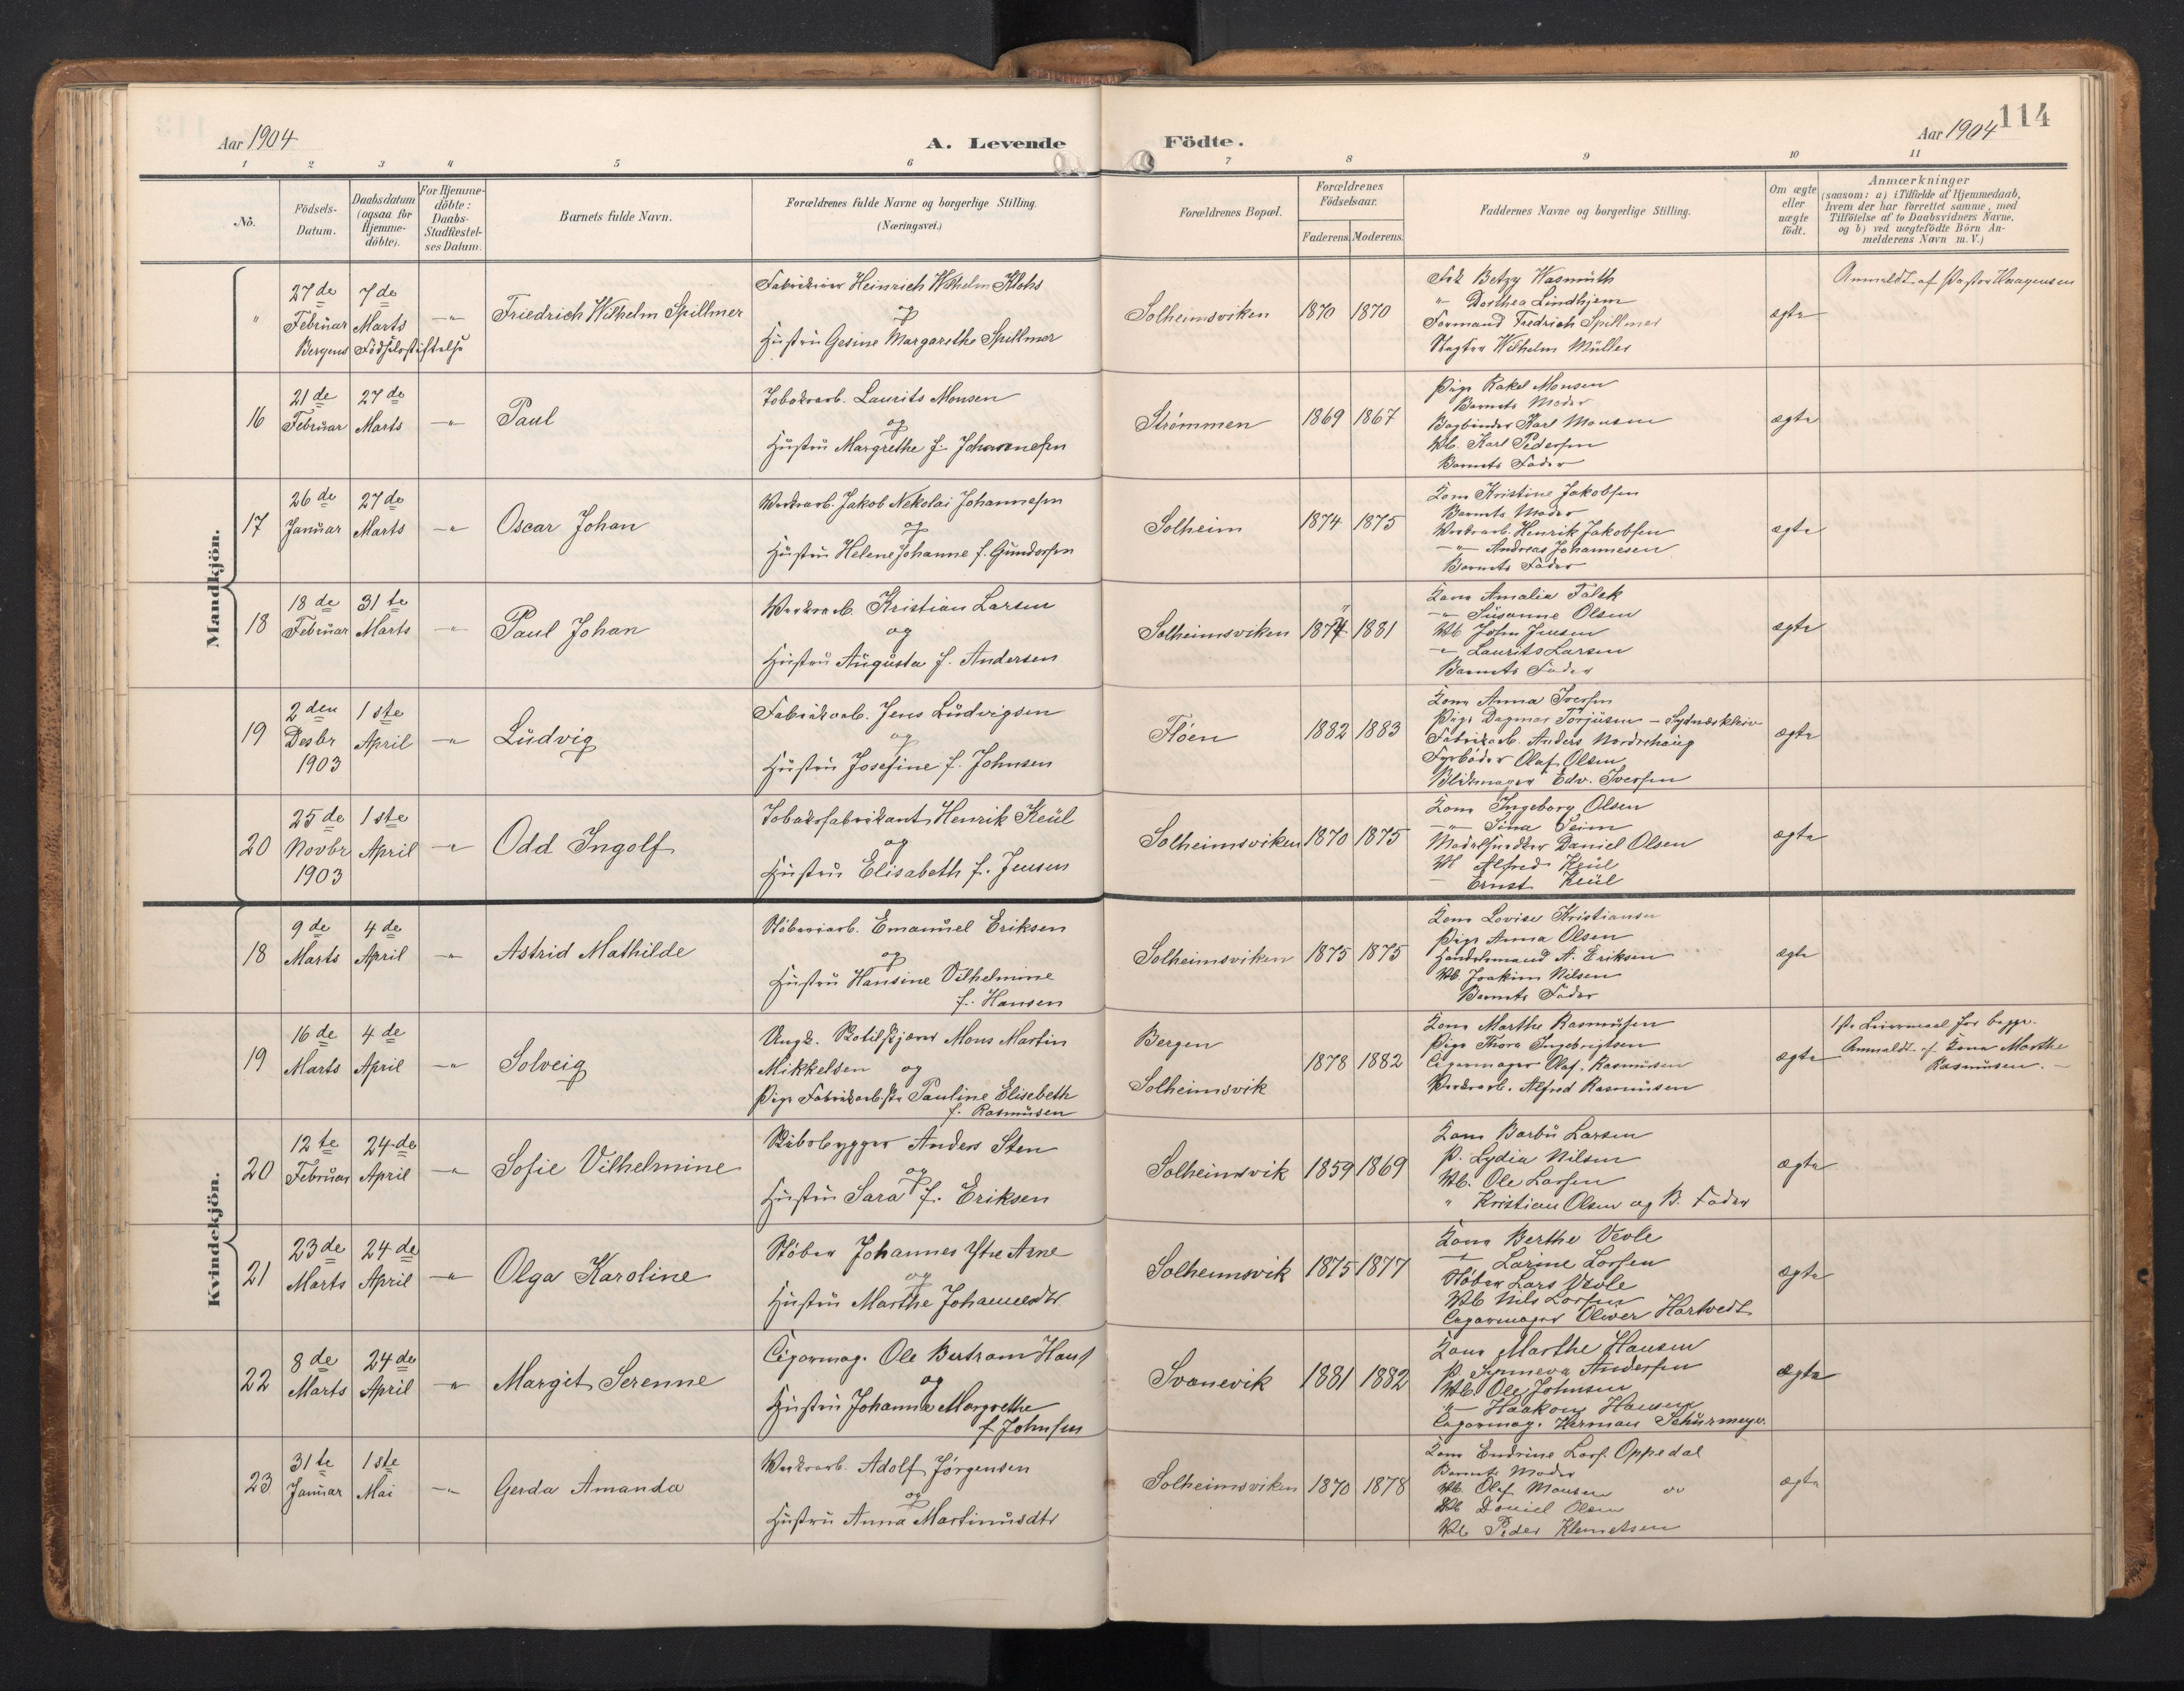 Aar 1904
A. Levende
Födte.
Aar 1904
114
1 2 3 4 5 6 7 8 9 10 11
No.
Födsels-Datum.
Daabsdatum (ogsaa for Hjemme-döbte).
For Hjemme-döbte: Daabs-Stadfæstel-ses Datum.
Barnets fulde Navn.
Forældrenes fulde Navne og borgerlige Stilling.
(Næringsvei.)
Forældrenes Bopæl.
Forældrenes Födselsaar.
Faderens. Moderens.
Faddernes Navne og borgerlige Stilling.
Om ægte eller uægte födt.
Anmærkninger
(saasom: a) i Tilfælde af Hjemmedaab,
hvem der har forrettet samme, med
Tilföielse af to Daabsvidners Navne.
og b) ved uægtefödte Börn An-
melderens Navn m.V.)
Mandkjön.
" 27de Februar 7de Marts
Bergens Födselsstiftelse
Friedrich Wilhelm Spillmer
Heinrich Wilhelm Klohs
og
Hustru Gesine Margarethe Spillmer
Solheimsviken 1870 1870
Frk Betzy Wasmuth
"- Dorthea Lindhjem
Formand Fredrich Spillmer
Wilhelm Müller
ægte
Anmeldt af Pastor Waagensen
16 21de Februar 27de Marts -"- Paul
Tobaksarb. Laurits Monsen
og
Hustru Margrethe f. Johannesen
Strømmen 1869 1867
Pige Rakel Monsen
Barnets Moder
Bogbinder Karl Monsen
Wb. Karl Pedersen
Barnets Fader
ægte
17 26de Januar 27de Marts -"- Oscar Johan
Værksarb. Jakob Nekolai Johannesen
og
Hustru Helene Johanne f. Gundersen
Solheim 1874 1875
Kone Kristine Jakobsen
Barnets Moder
Værksarb. Henrik Jakobsen
-"- Andreas Johannesen
Barnets Fader
ægte
18 18de Februar 31te Marts -"- Paul Johan
Værksarb. Kristian Larsen
og
Hustru Augusta f. Andersen
Solheimsviken 1874 1881
Kone Amalia Falck
-"- Susanne Olsen
Wb John Jensen
-"- Laurits Larsen
Barnets Fader
ægte
19 2den Desbr 1903 1ste April -"- Ludvig
Fabrikarb. Jens Ludvigsen
og
Hustru Josefine f. Johnsen
Fløen 1882 1883
Kone Anna Iversen
Pige Dagmar Torjusen - Sydneskleiv
Fabrikarb. Anders Nordrehaug
Fyrbøder Olaf Olsen
Blikmager Edv. Iversen
ægte
20 25de Novbr 1903 1ste April -"- Odd Ingolf
Tobaksfabrikant Henrik Keül
og
Hustru Elisabeth f. Jensen
Solheimsviken 1870 1875
Kone Ingeborg Olsen
-"- Sina Seim
Modelsnedker Daniel Olsen
Alfred Keül
Ernst Keül
ægte
Kvindekjön.
18 9de Marts 4de April -"- Astrid Mathilde
Støberiarb. Emanuel Eriksen
og
Hustru Hansine Vilhelmine
f. Hansen
Solheimsviken 1875 1875
Kone Lovise Kristiansen
Pige Anna Olsen
Handelsmand A. Eriksen
Wb. Joakim Nilsen
Barnets Fader
ægte
19 16de Marts 4de April -"- Solveig
Ungk. Mons Martin
Mikkelsen og
Pige Fabrikarbske Pauline Elisebeth
f. Rasmusen
Bergen
Solheimsvik
1878 1882
Kone Marthe Rasmusen
Pige Thora Ingebrigtsen
Cigarmager Olaf Rasmusen
Værksarb. Alfred Rasmusen
ægte
1ste Leiermaal for begge.
Anmeldt af Kone Marthe
Rasmusen.
20 12te Februar 24de April -"- Sofie Vilhelmine
Skibsbygger Anders Sten
og
Hustru Sara f. Eriksen
Solheimsvik 1859 1869
Kone Barbu Larsen
P. Lydia Nilsen
Wb. Ole Larsen
" Kristian Olsen og B. Fader
ægte
21 23de Marts 24de April -"- Olga Karoline
Støber Johannes Ytre Arne
og
Hustru Marthe Johannesdtr.
Solheimsvik 1875 1877
Kone Berthe Veole
-"- Larine Larsen
Støber Lars Veole
Wb Nils Larsen
Cigarmager Oliver Hartvedt
ægte
22 8de Marts 24de April -"- Margit Serenne
Cigarmag. Ole Bertram Hans
og
Hustru Johanne Margrethe
f Johnsen
Svanevik 1881 1882
Kone Marthe Hansen
P. Synneva Andersen
Wb. Ole Johnsen
-"- Haakon Hansen
Cigarmag. Herman Schürmeyer
ægte
23 31te Januar 1ste Mai -"- Gerda Amanda
Værksarb. Adolf Jørgensen
og
Hustru Anna Martinusdtr
Solheimsviken 1870 1878
Kone Endrine Lars. Oppedal
Barnets Moder
Wb. Olaf Monsen
Wb Daniel Olsen
Wb Peder Klemetsen
ægte